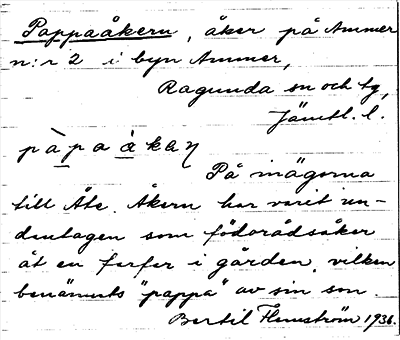 Pappaåkern, åker på Ammer
n:r 2 i byn Ammer,
Ragunda sn och tg,
Jämtl. l.
pàpaàkaŋ
På inägorna
till Åte. Åkern har varit un-
dantagen som födorådsåker
åt en farfar i gården, vilken
benämnts "pappa" av sin son.
Bertil Flemström 1936.